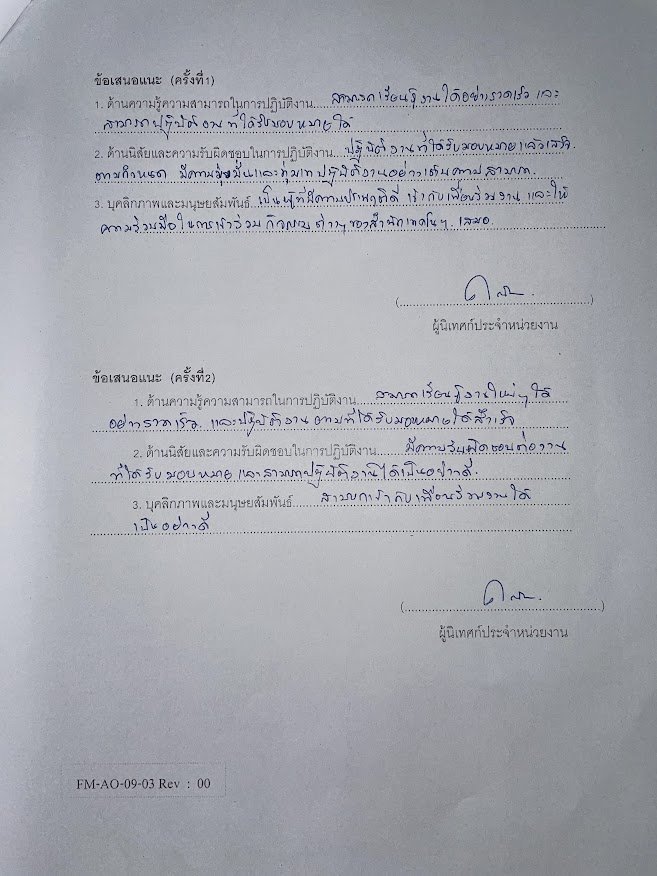 ข้อเสนอแนะ (ครั้งที่1)
1. ด้านความรู้ความสามารถในการปฏิบัติงาน....สามารถเรียนรู้งานได้อย่างรวดเร็ว และ
สามารถปฏิบัติงานที่ได้รับมอบหมายได้
2. ด้านนิสัยและความรับผิดชอบในการปฏิบัติงาน....ปฏิบัติงานที่ได้รับมอบหมายแล้วเสร็จ
ตามกำหนด มีความมุ่งมั่นและทุ่มเทปฏิบัติงานอย่างเต็มความสามารถ.
3. บุคลิกภาพและมนุษยสัมพันธ์..เป็นผู้ที่มีความประพฤติดี เข้ากับเพื่อนร่วมงาน และให้
ความร่วมมือในการเข้าร่วมกิจกรรมต่างๆของสำนักเทคโนฯ เสมอ
(....................)
ผู้นิเทศก์ประจำหน่วยงาน
ข้อเสนอแนะ (ครั้งที่2)
1. ด้านความรู้ความสามารถในการปฏิบัติงาน....สามารถเรียนรู้งานใหม่ๆได้
อย่างรวดเร็ว และปฏิบัติงานตามที่ได้รับมอบหมายได้สำเร็จ
2. ด้านนิสัยและความรับผิดชอบในการปฏิบัติงาน....มีความรับผิดชอบต่องาน
ที่ได้รับมอบหมาย และสามารถปฏิบัติงานได้เป็นอย่างดี.
3. บุคลิกภาพและมนุษยสัมพันธ์....สามารถเข้ากับเพื่อนร่วมงานได้
เป็นอย่างดี
(....................)
ผู้นิเทศก์ประจำหน่วยงาน
FM-AO-09-03 Rev : 00